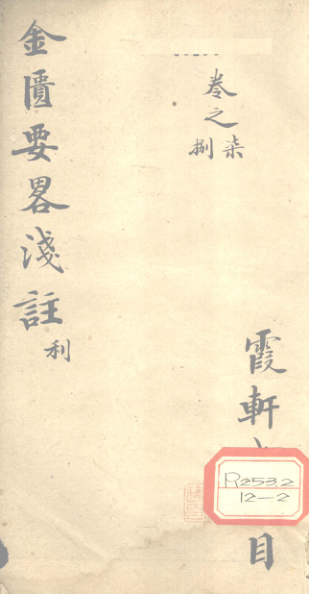 霞軒
目
卷之
柒捌
金匱要畧淺註
利
R253.2
12-2